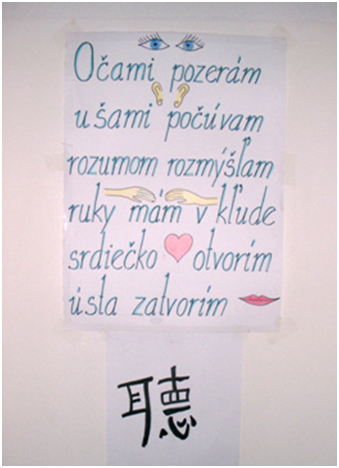 Očami pozerám
ušami počúvam
rozumom rozmýšľam
ruky mám v kľude
srdiečko otvorím
ústa zatvorím
聽